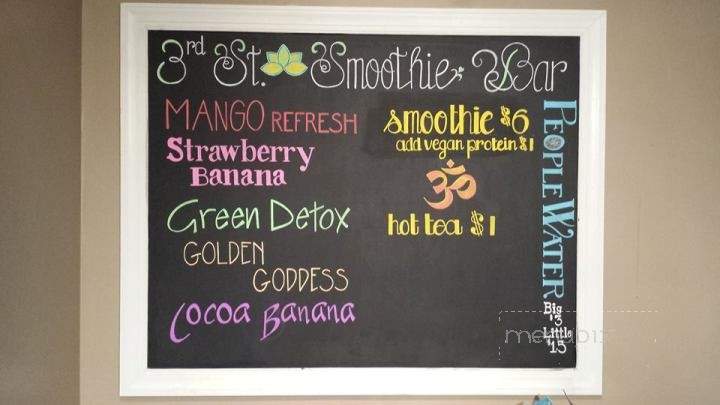 3rd St. Smoothie Bar
MANGO REFRESH
Strawberry
Banana
Green Detox
GOLDEN
GODDESS
Cocoa Banana
smoothie $6
add vegan protein $1
ॐ
hot tea $1
PEOPLE WATER
Big
$3
Little
$1.5